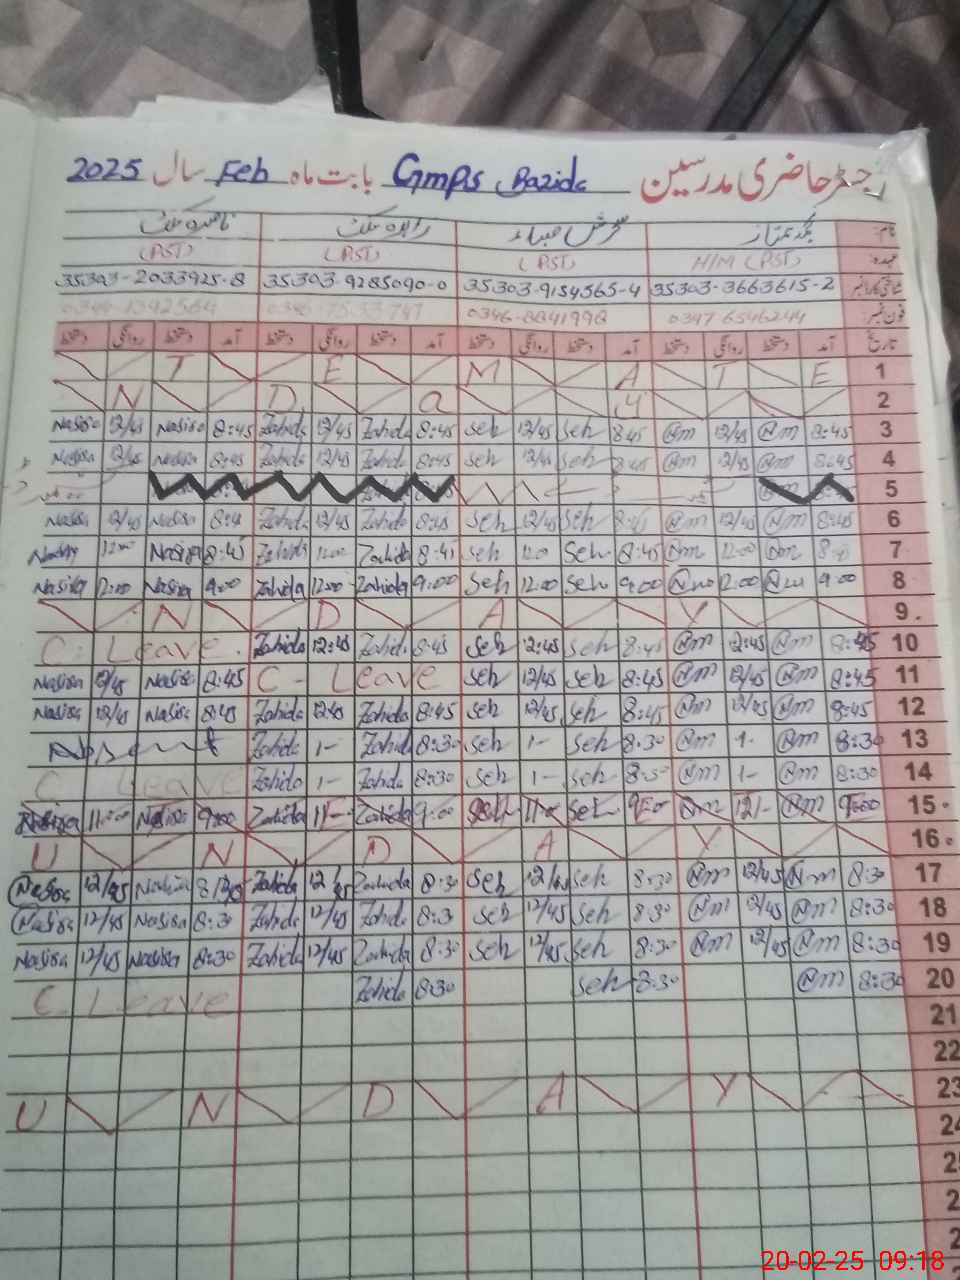 رجسٹر حاضری مدرسین Gmps Bazida بابت ماہ Feb سال 2025
نام:
عہدہ: H/M (PST) (PST) (PST) (PST)
35303-2033925-8 35303-9285090-0 35303-9154565-4 35303-3663615-2
فون نمبر: 0347 6546244 0346-8841998
تاریخ آمد دستخط روانگی دستخط آمد دستخط روانگی دستخط آمد دستخط روانگی دستخط آمد دستخط روانگی دستخط
T E M A T E 1
N D a y 2
Nasira 12/45 Nasira 8:45 Zahida 12/45 Zahida 8:45 Seh 12/45 Seh 8:45 @m 12/45 @m 8:45 3
Nasira 12/45 Nasira 8:45 Zahida 12/45 Zahida 8:45 Seh 12/45 Seh 8:45 @m 12/45 @m 8:45 4
5
Nasira 12/45 Nasira 8:45 Zahida 12/45 Zahida 8:45 Seh 12/45 Seh 8:45 @m 12/45 @m 8:45 6
Nasira 8:45 Zahida 12:00 Zahida 8:45 Seh Seh 8:45 @m 12:00 @m 7
Nasira 12:00 Nasira 9:00 Zahida 12:00 Zahida 9:00 Seh 12:00 Seh 9:00 @m 12:00 @m 9:00 8
N D A Y 9.
C. Leave. Zahida 12:45 Zahida 8:45 Seh 12:45 Seh 8:45 @m 12:45 @m 8:45 10
Nasira 12/45 Nasira 8:45 C - Leave Seh 12/45 Seh 8:45 @m 12/45 @m 8:45 11
Nasira 12/45 Nasira 8:45 Zahida 12:45 Zahida 8:45 Seh 12/45 Seh 8:45 @m 12/45 @m 8:45 12
Absent Zahida 1- Zahida 8:30 Seh 1- Seh 8:30 @m 1- @m 8:30 13
C Leave Zahida 1- Zahida 8:30 Seh 1- Seh 8:30 @m 1- @m 8:30 14
Nasira 11:00 Nasira 9:00 Zahida 11- Zahida 9:00 Seh 11:00 Seh 9:00 @m 12/- @m 9:00 15.
U N D A Y 16.
Nasira 12/45 8:30 Zahida 12/45 Zahida 8:30 Seh 12/45 Seh 8:30 @m 12/45 @m 8:30 17
Nasira 12/45 Nasira 8:30 Zahida 12/45 Zahida 8:30 Seh 12/45 Seh 8:30 @m 12/45 @m 8:30 18
Nasira 12/45 Nasira 8:30 Zahida 12/45 Zahida 8:30 Seh 12/45 Seh 8:30 @m 12/45 @m 8:30 19
C. Leave Zahida 8:30 Seh 8:30 @m 8:30 20
21
22
U N D A Y 23
24
25
2
2
20-02-25 09:18